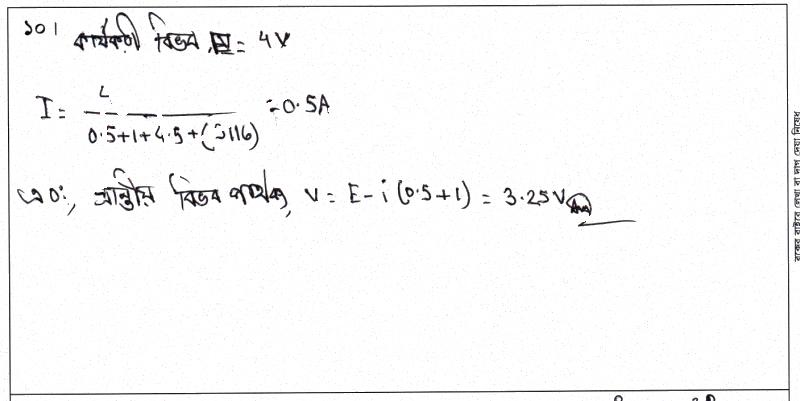 ১০। কার্যকরী বিভব, E = 4V
I = 4 / 0.5+1+4.5+(3||6) = 0.5A
∴, প্রান্তীয় বিভব পার্থক্য, V = E - i(0.5+1) = 3.25V Ans
বক্সের বাইরে লেখা বা দাগ দেয়া নিষেধ